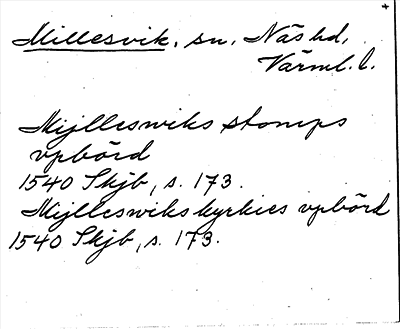 Millesvik, sn, Näs hd,
Värml. l.
Mijlleswiks stomps
vpbörd
1540 Skjb, s. 173.
Mijlleswiks kyrkies vpbörd
1540 Skjb, s. 173.